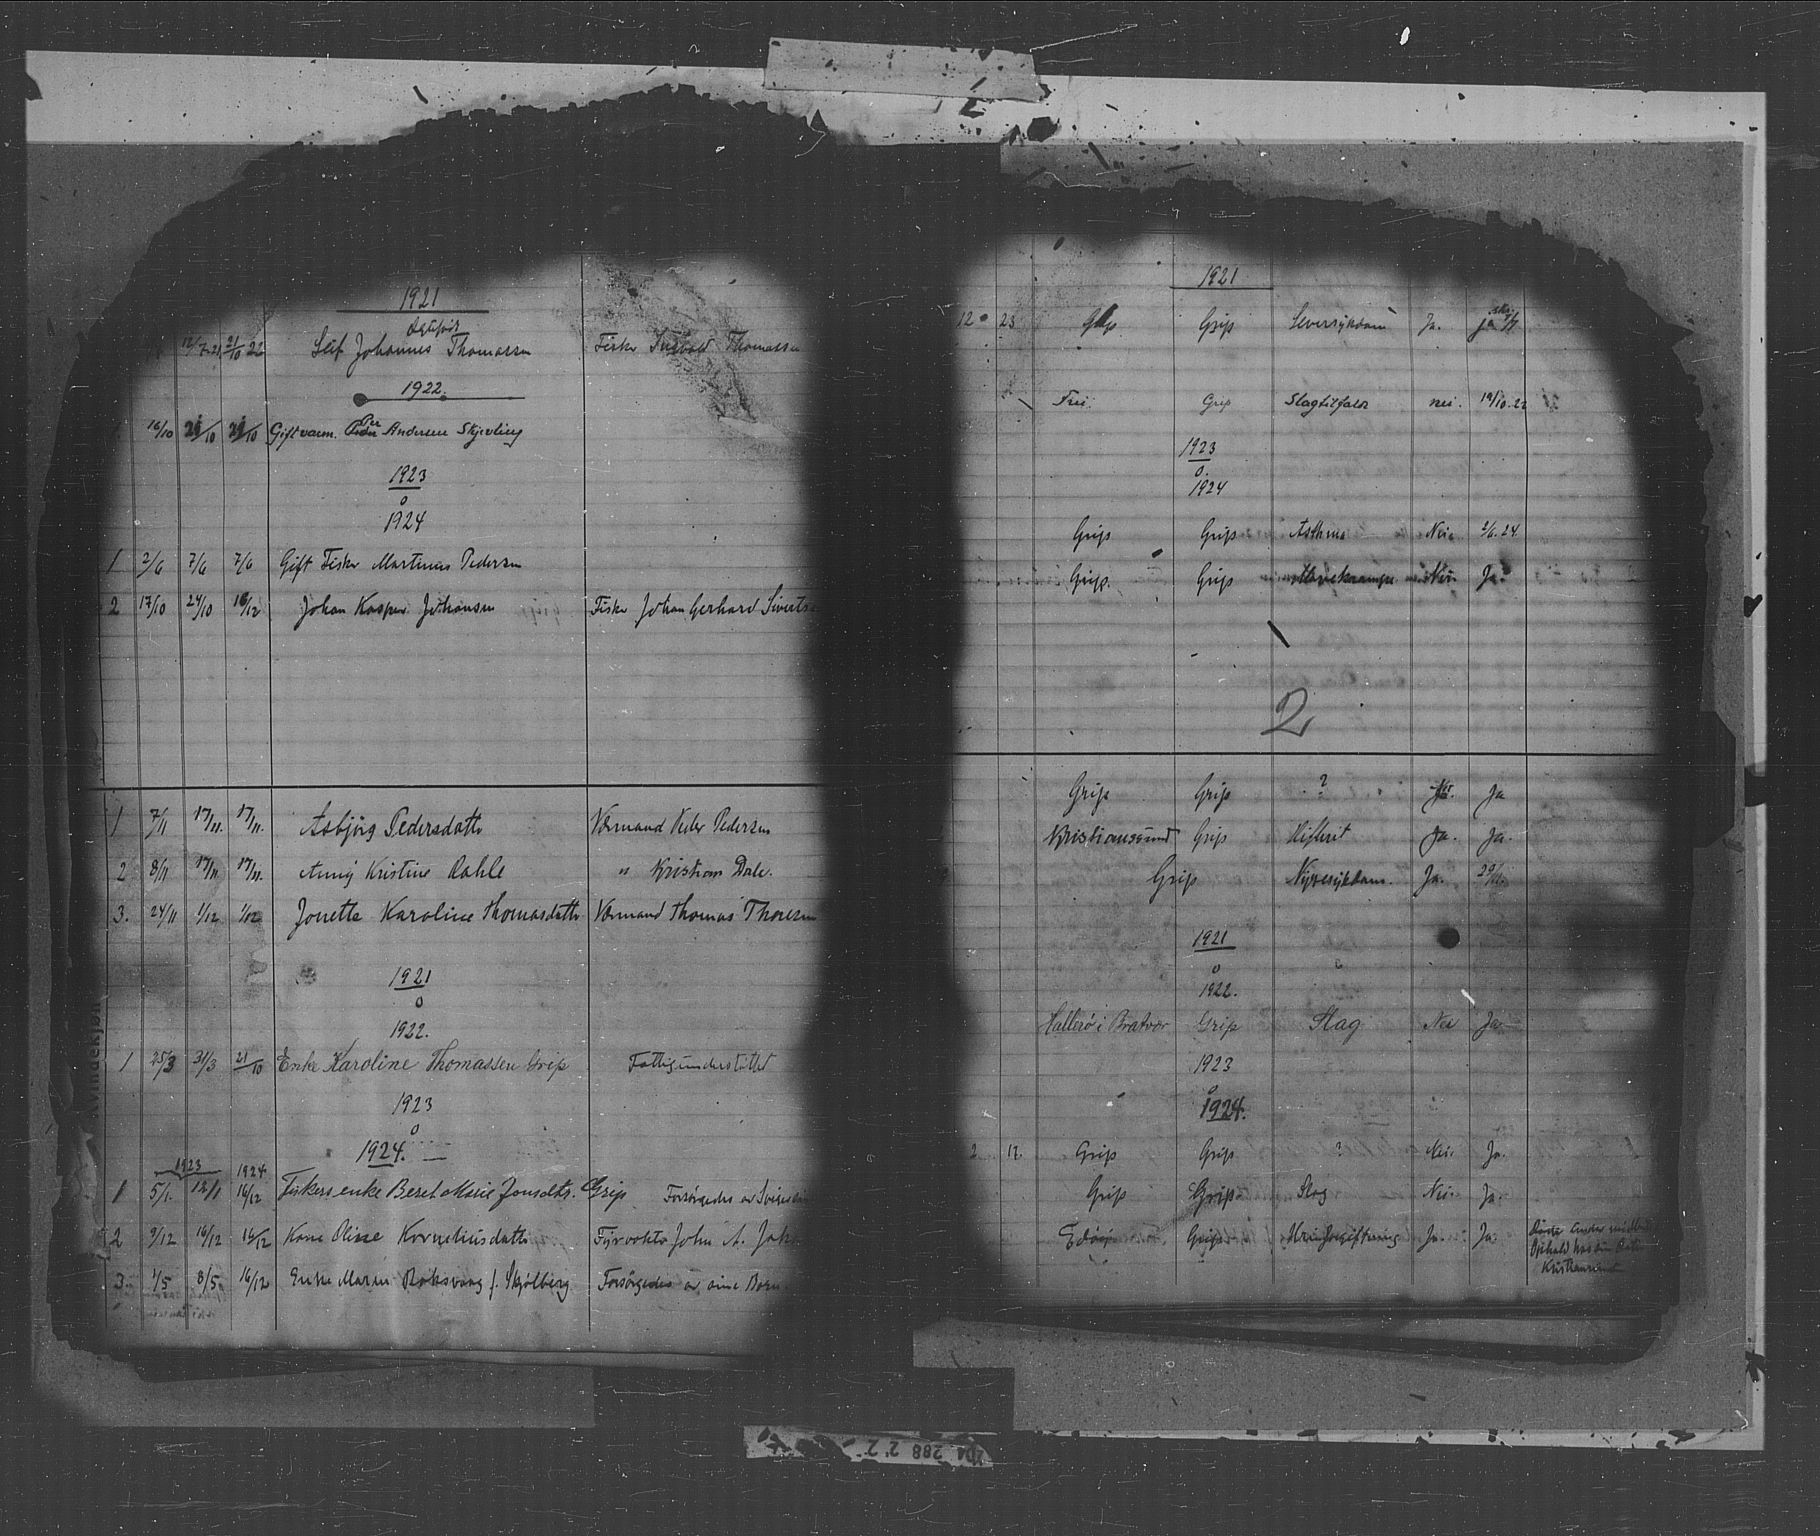 1921
12/7 21 21/10 22 Leif Johannes Thomassen Fisker Thomassen
1922.
16/10 21/10 21/10 Gift varm. Per Andersen Skjevling
1923
o
1924
1 2/6 7/6 7/6 Gift Fisker Martinus Pedersen
2 17/10 24/10 16/12 Johan Kasper Johansen Fisker Johan Gerhard Siverts
Kvindekjøn
1 7/11 17/11. 17/11. Asbjörg Pedersdatter Vormand Peder Pedersen
2 8/11 17/11 17/11. Anny Kristine Dahle " Kristian Dale.
3. 24/11 1/12 1/12 Jonetta Karoline Thomasdatter Vormand Thomas Thoresen
1921
o
1922.
1 25/3 31/3 21/10 Enke Karoline Thomassen Grip Fattigunderstöttet
1923
o
1924.
1923 1924
1 5/1. 12/1 16/12 Fiskers enke Beret Marie Jonsdtr. Grip Forsörgedes av
2 9/12 16/12 16/12 Korneliusdatter Fyrvokter John A. Joh
3. 1/5 8/5 16/12 Enke Maren Roksvaag f. Skjölberg Forsörgedes av sine Börn.
1921
12 23 Grip Grip Leversykdom Ja. ja
Frei. Grip Slagtilfælde nei. 19/10.22
1923
o.
1924
Grip Grip Asthma Nei. 2/6.24
Grip. Grip Mavekrampe Nei. Ja.
2
Grip Grip ? Ja
Kristiansund Grip Difterit Ja. Ja.
Grip Nyresykdom. Ja. 29/11.
1921
o
1922.
Hallerö i Bratvær Grip Slag Nei Ja
1923
o
1924.
2 17. Grip Grip ? Nei. Ja.
Grip Grip Slag Nei. Ja.
Edöy Grip Urinforgiftning Ja. Ja.
Döde under midl.
Ophold hos sin
Kristiansund
288 2 2